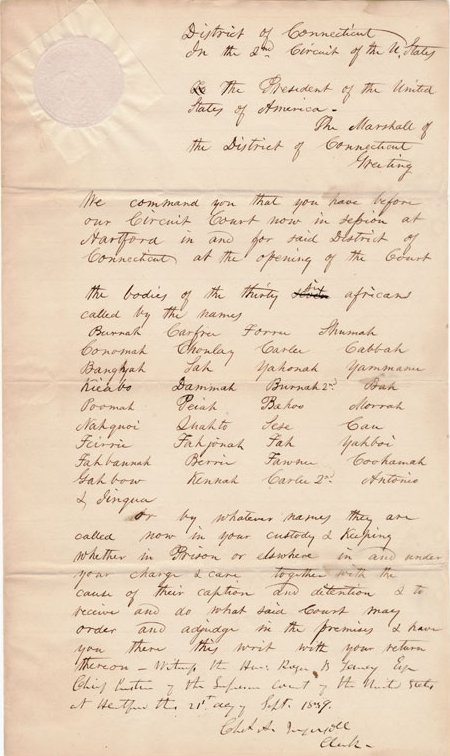 District of Connecticut
In the 2nd Circuit of the U. States
the President of the United
States of America -
The Marshall of
the District of Connecticut
Greeting
We command you that you have before
our Circuit Court now in session at
Hartford in and for said District of
Connecticut at the opening of the Court
the bodies of the thirty six africans
called by the names
Burnah Carfree Forrie Shumah
Conomah Chonlay Carlee Cabbah
Bangyah Sah Yahonah Yammanu
Kicabo Dammah Burnah 2nd Bah
Poomah Peiah Bahoo Morrah
Nahquoi Quahto Sese Cau
Feirrie Fahjonah Fah Yahboi
Fahbannah Berrie Fawnu Coohamah
Gahbow Kennah Carlee 2nd Antonio
& Jingua
or by whatever names they are
called now in your custody & keeping
whether in Prison or elsewhere in and under
your charge & care together with the
cause of their caption and detention & to
receive and do what said Court may
order and adjudge in the premises & have
you there this writ with your return
thereon - Witness the Hon. Roger B Taney Esq
Chief Justice of the Supreme Court of the United States
at Hartford this 21st day of Sept. 1839.
Chas. A. Ingersoll
Clerk -